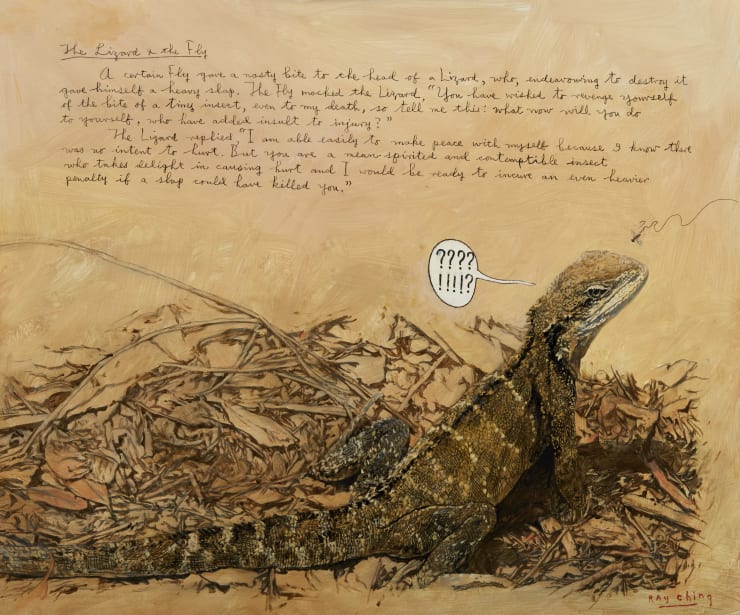 The Lizard & the Fly
A certain Fly gave a nasty bite to the head of a Lizard, who, endeavouring to destroy it
gave himself a heavy slap. The Fly mocked the Lizard, "You have wished to revenge yourself
of the bite of a tiny insect, even to my death, so tell me this: what now will you do
to yourself, who have added insult to injury?"
The Lizard replied, "I am able easily to make peace with myself because I know there
was no intent to hurt. But you are a mean-spirited and contemptible insect
who takes delight in causing hurt and I would be ready to incure an even heavier
penalty if a slap could have killed you."
????
!!!!?
RAY Ching